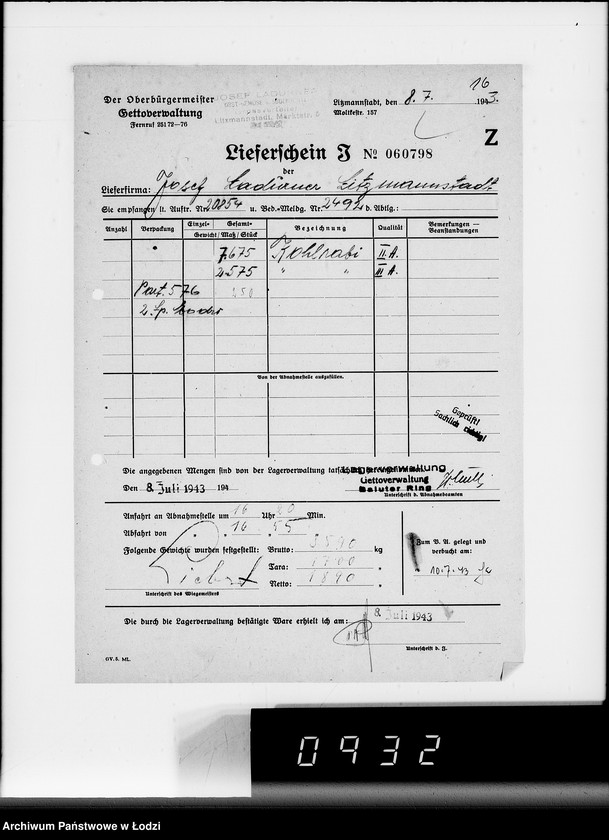 16
Der Oberbürgermeister
Gettoverwaltung
Fernruf 25172—76
JOSEF
Litzmannstadt, Marktstr.
Litzmannstadt, den 8. 7. 1943.
Moltkestr. 157
Z
Lieferschein J № 060798
der
Lieferfirma: Josef Litzmannstadt
Sie empfangen lt. Auftr. Nr. 20854 u. Bed.-Meldg. Nr. 2492 d. Abtlg.:
Anzahl Verpackung Einzel- Gesamt- Gewicht / Maß / Stück Bezeichnung Qualität Bemerkungen — Beanstandungen
7.675 Kohlrabi II A.
2.575 " " III A.
Part. 576 250
2. Sp.
Von der Abnahmestelle auszufüllen.
Geprüft!
Sachlich richtig!
Die angegebenen Mengen sind von der Lagerverwaltung
Lagerverwaltung
Gettoverwaltung
Baluter Ring
Den 8. Juli 1943 194
Unterschrift d. Abnahmebeamten
Anfahrt an Abnahmestelle um 16 Uhr 20 Min.
Abfahrt von " " 16 " 55 "
Folgende Gewichte wurden festgestellt: Brutto: 3590 kg
Tara: 1700 "
Netto: 1890 "
Unterschrift des Wiegemeisters
Zum B. A. gelegt und
verbucht am:
10.7.43
Die durch die Lagerverwaltung bestätigte Ware erhielt ich am: 8. Juli 1943
Unterschrift d. J.
GV. 5. ML.
0932
Archiwum Państwowe w Łodzi